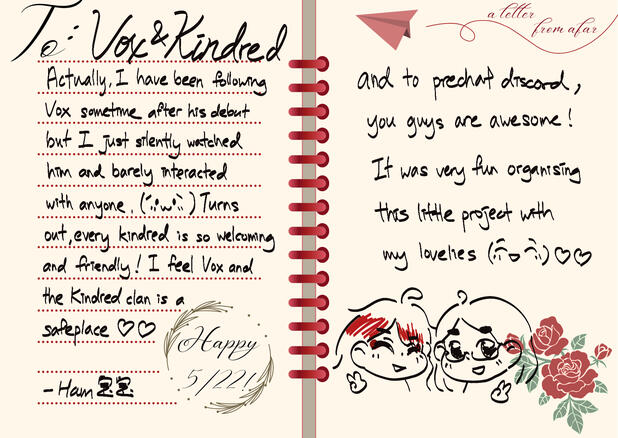 To: Vox & Kindred
Actually, I have been following
Vox sometime after his debut
but I just silently watched
him and barely interacted
with anyone. (´;ω;`) Turns
out, every kindred is so welcoming
and friendly! I feel Vox and
the Kindred clan is a
safeplace ♡♡
Happy
5/22!
- Ham
a letter
from afar
and to prechat discord,
you guys are awesome!
It was very fun organising
this little project with
my lovelies ♡♡